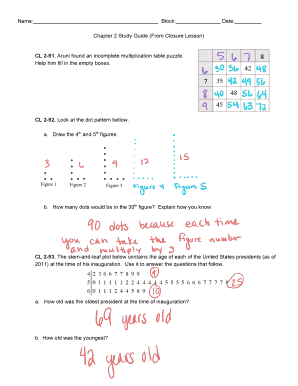 Name: Block: Date:
Chapter 2 Study Guide (From Closure Lesson)
CL 2-91. Aruni found an incomplete multiplication table puzzle.
Help him fill in the empty boxes.
5 6 7 8
6 30 36 42 48
7 35 42 49 56
8 40 48 56 64
9 45 54 63 72
CL 2-92. Look at the dot pattern below.
a. Draw the 4th and 5th figures.
3 6 9 12 15
Figure 1 Figure 2 Figure 3 Figure 4 Figure 5
b. How many dots would be in the 30th figure? Explain how you know.
90 dots because each time
you can take the figure number
and multiply by 3
CL 2-93. The stem-and-leaf plot below contains the age of each of the United States presidents (as of
2011) at the time of his inauguration. Use it to answer the questions that follow.
4 2 3 6 6 7 7 8 9 9 9
25
6 0 1 1 1 2 4 4 5 8 9 10
a. How old was the oldest president at the time of inauguration?
69 years old
b. How old was the youngest?
42 years old